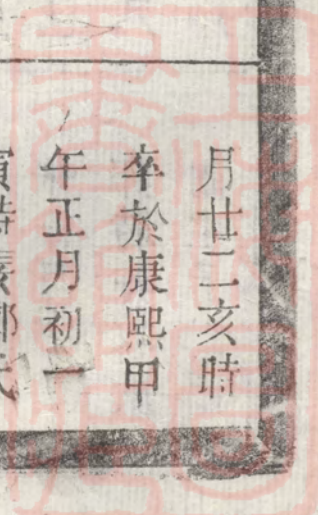 月廿二亥時
卒於康熙甲
午正月初一
寅時娶鄭氏